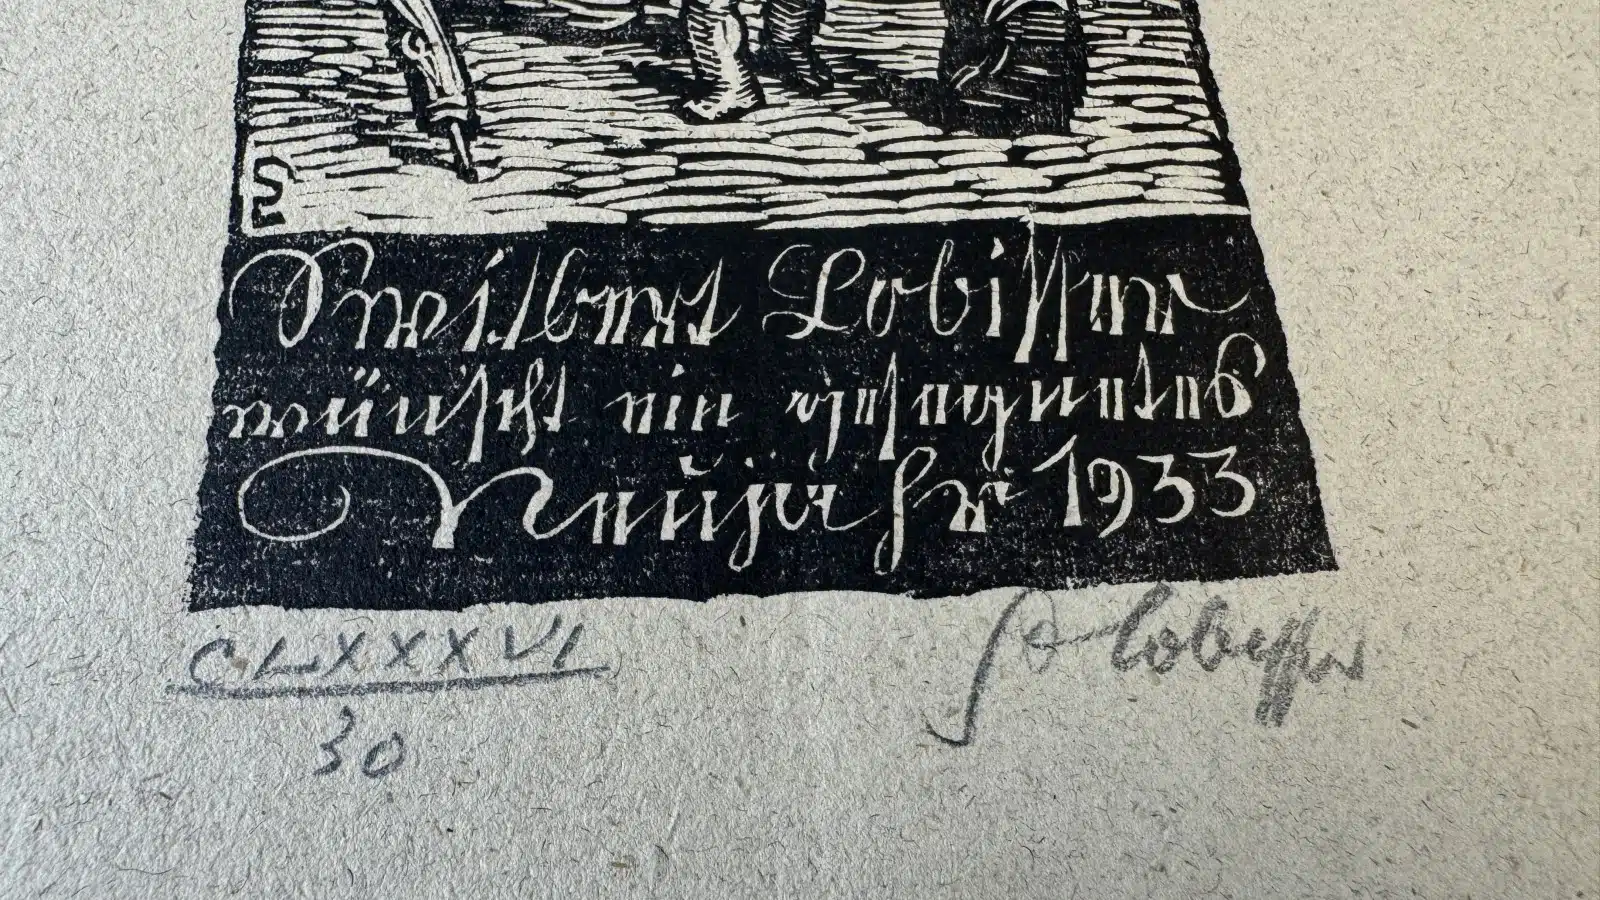 Switbert Lobisser
wünscht ein gesegnetes
Neujahr 1933
CLXXXVI
30
Lobisser